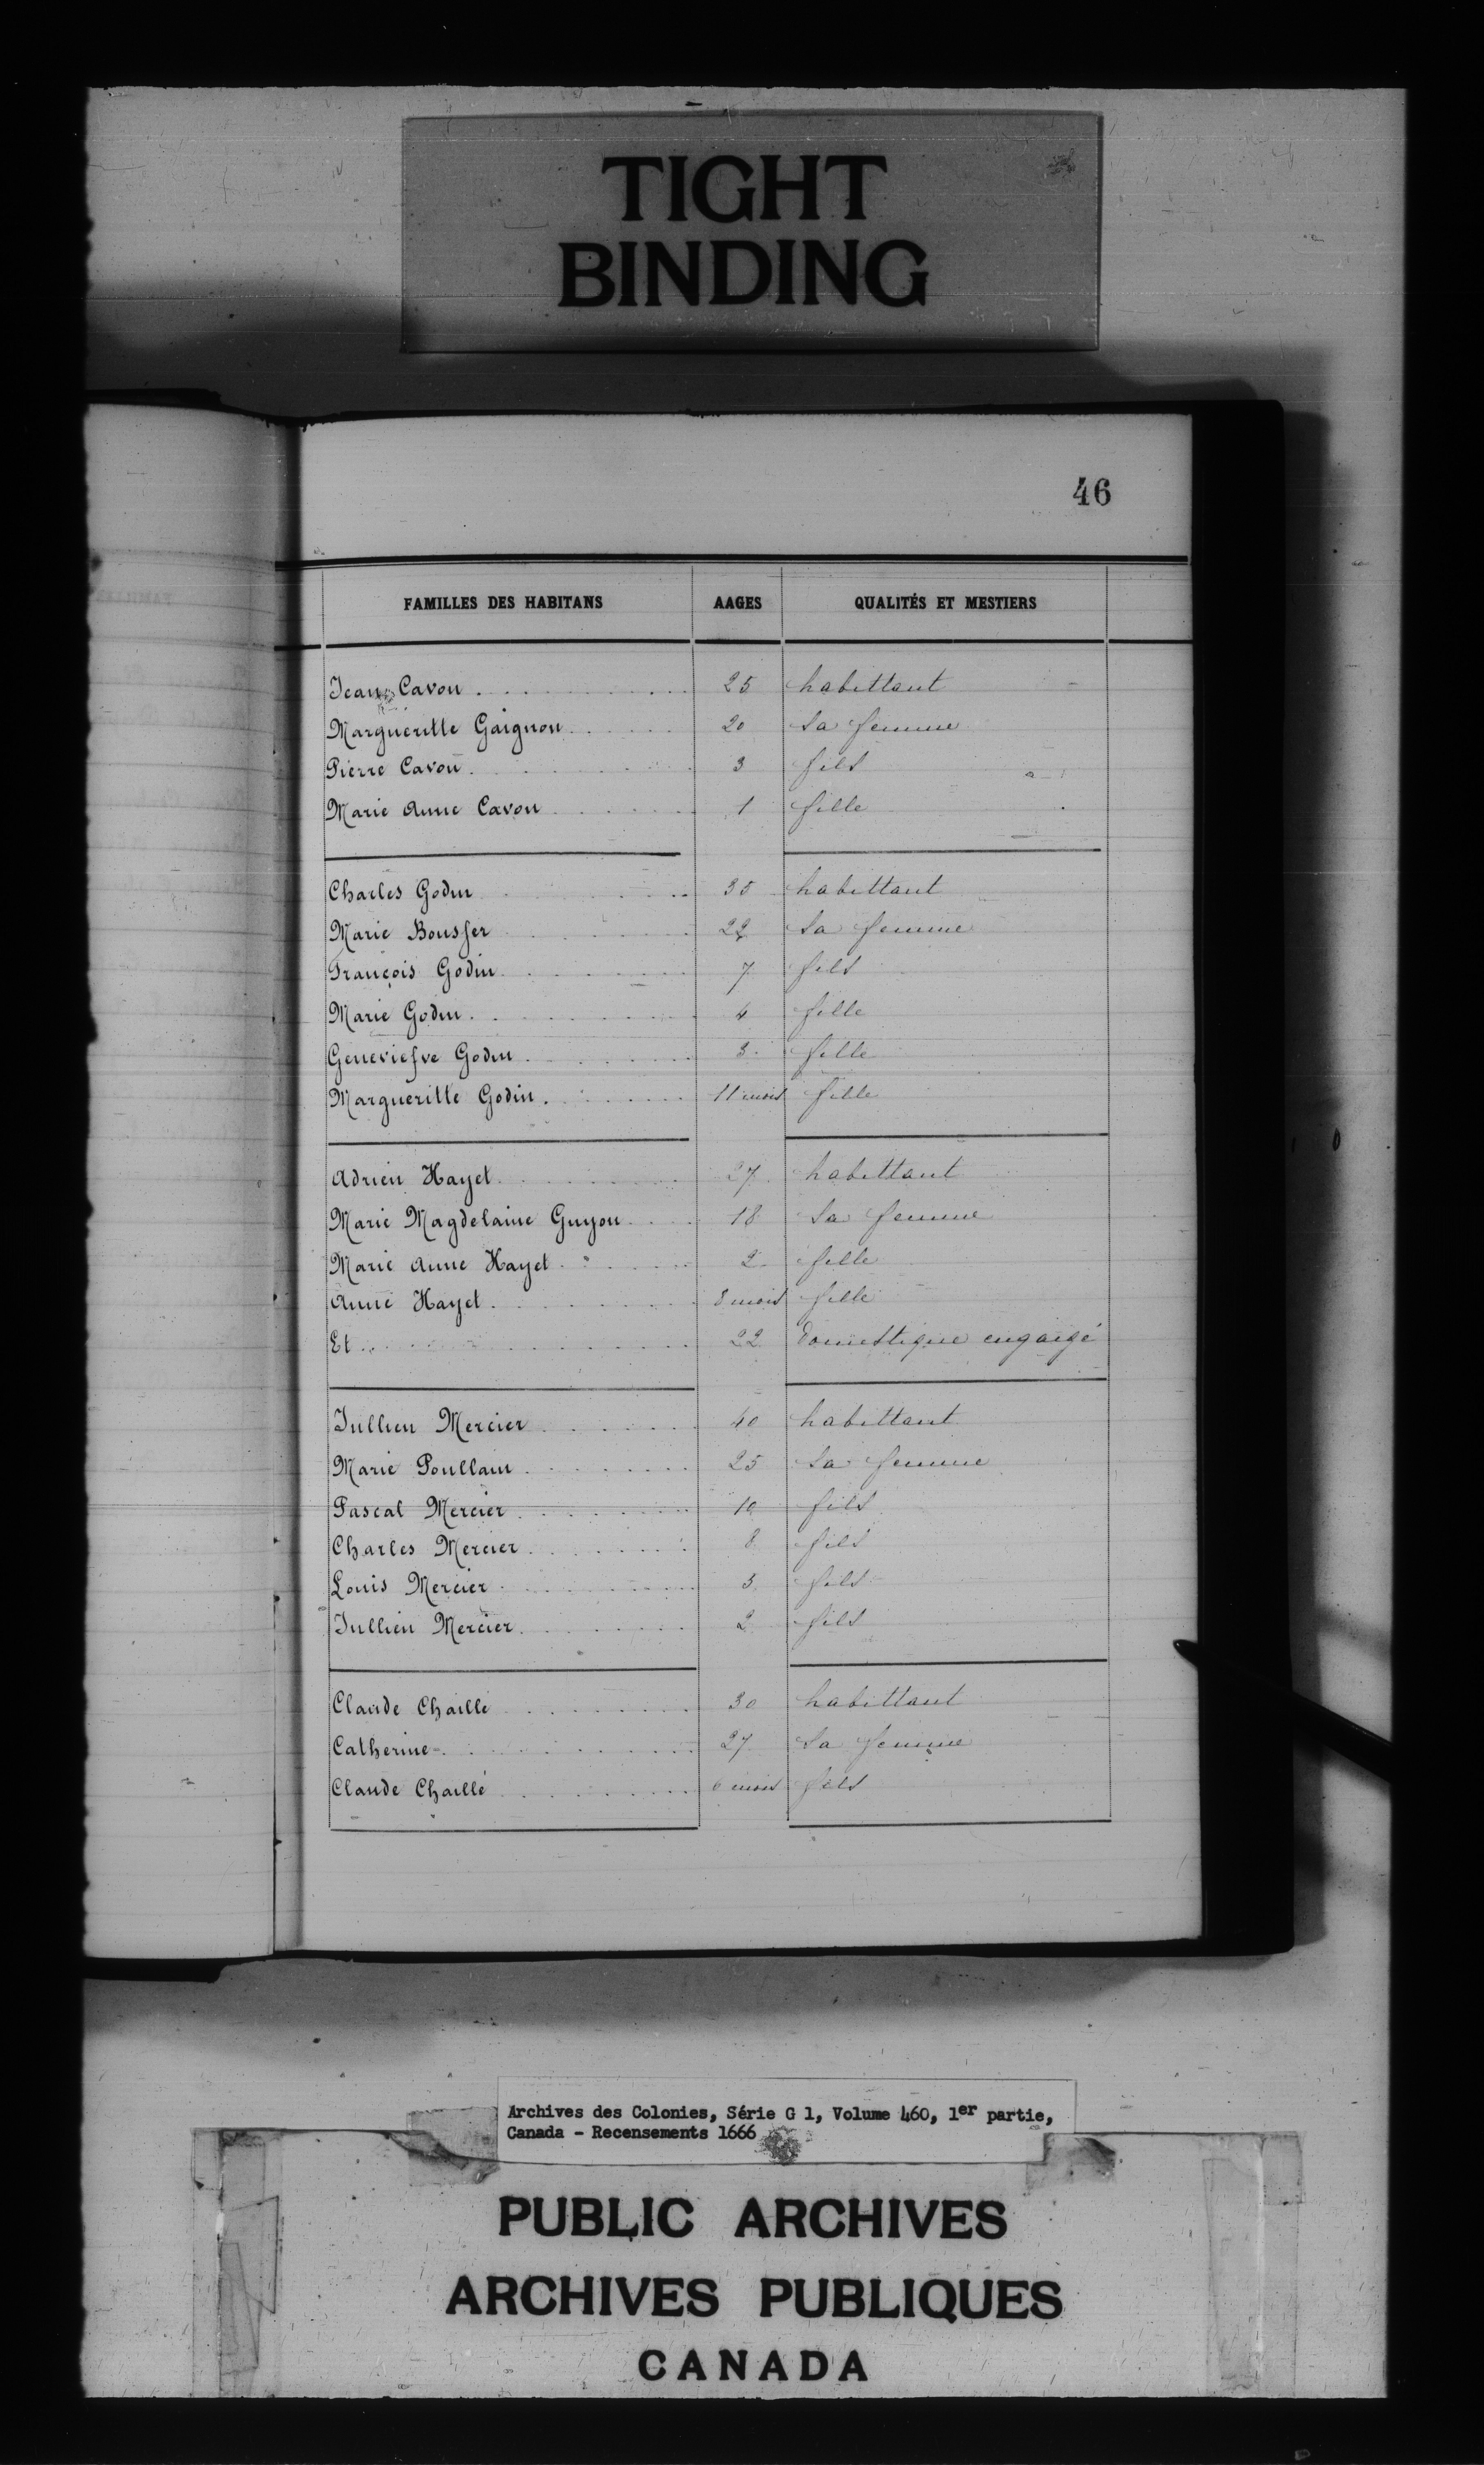 TIGHT
BINDING
46
FAMILLES DES HABITANS AAGES QUALITÉS ET MESTIERS
Jean Cavon 25 habittant
Margueritte Gaignon 20 sa femme
Pierre Cavon 3 fils
Marie Anne Cavon 1 fille
Charles Godin 35 habittant
Marie Bousser 22 sa femme
François Godin 7 fils
Marie Godin 4 fille
Geneviesve Godin 3 fille
Margueritte Godin 11 mois fille
Adrien Hayet 27 habittant
Marie Magdelaine Guyon 18 sa femme
Marie Anne Hayet 2 fille
Anne Hayet 8 mois fille
Et 22 domestique engaigé
Jullien Mercier 40 habittant
Marie Poullain 25 sa femme
Pascal Mercier 10 fils
Charles Mercier 8 fils
Louis Mercier 3 fils
Jullien Mercier 2 fils
Claude Chaillé 30 habittant
Catherine 27 sa femme
Claude Chaillé 6 mois fils
Archives des Colonies, Série G 1, Volume 460, 1er partie,
Canada - Recensements 1666
PUBLIC ARCHIVES
ARCHIVES PUBLIQUES
CANADA